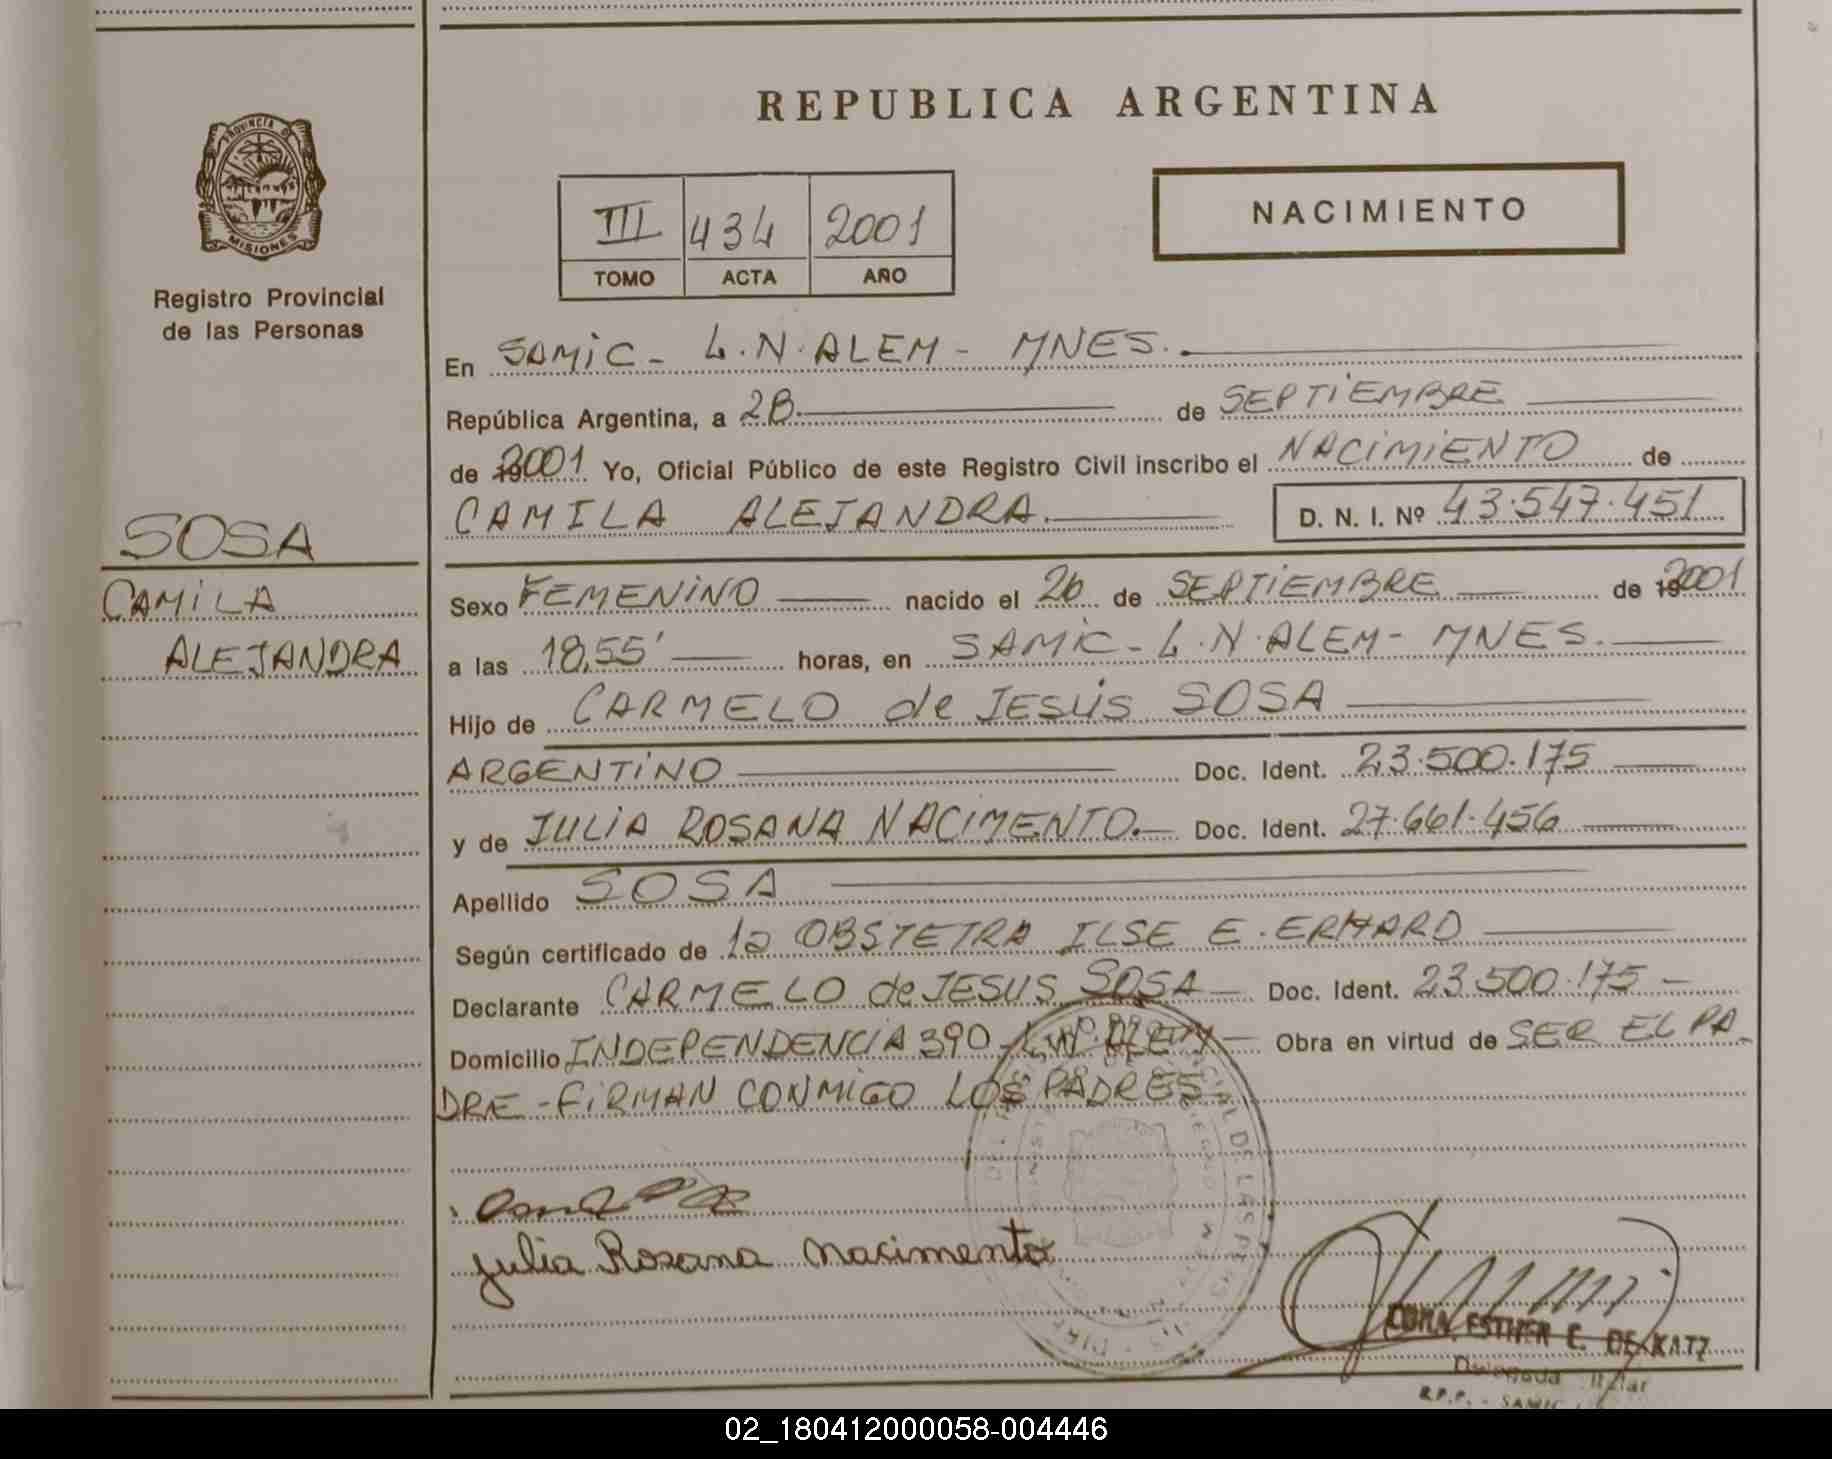 REPUBLICA ARGENTINA
PROVINCIA D
MISIONES
Registro Provincial
de las Personas
III 434 2001
TOMO ACTA AÑO
NACIMIENTO
En SAMIC - L.N. ALEM - MNES.
República Argentina, a 28. de SEPTIEMBRE
de 2001 Yo, Oficial Público de este Registro Civil inscribo el NACIMIENTO de
CAMILA ALEJANDRA. D. N. I. Nº 43.547.451
SOSA
CAMILA
ALEJANDRA
Sexo FEMENINO nacido el 26 de SEPTIEMBRE de 2001
a las 18,55' horas, en SAMIC - L.N. ALEM - MNES.
Hijo de CARMELO de JESÚS SOSA
ARGENTINO Doc. Ident. 23.500.175
y de JULIA ROSANA NACIMENTO. Doc. Ident. 27.661.456
Apellido SOSA
Según certificado de la OBSTETRA ILSE E. ERHARD
Declarante CARMELO de JESUS SOSA Doc. Ident. 23.500.175
Domicilio INDEPENDENCIA 390 - L.N. ALEM - Obra en virtud de SER EL PA-
DRE - FIRMAN CONMIGO LOS PADRES
Julia Rosana Nacimento
ESTHER C. DE KATZ
Delegada Titular
R.P.P. - SAMIC
02_180412000058-004446